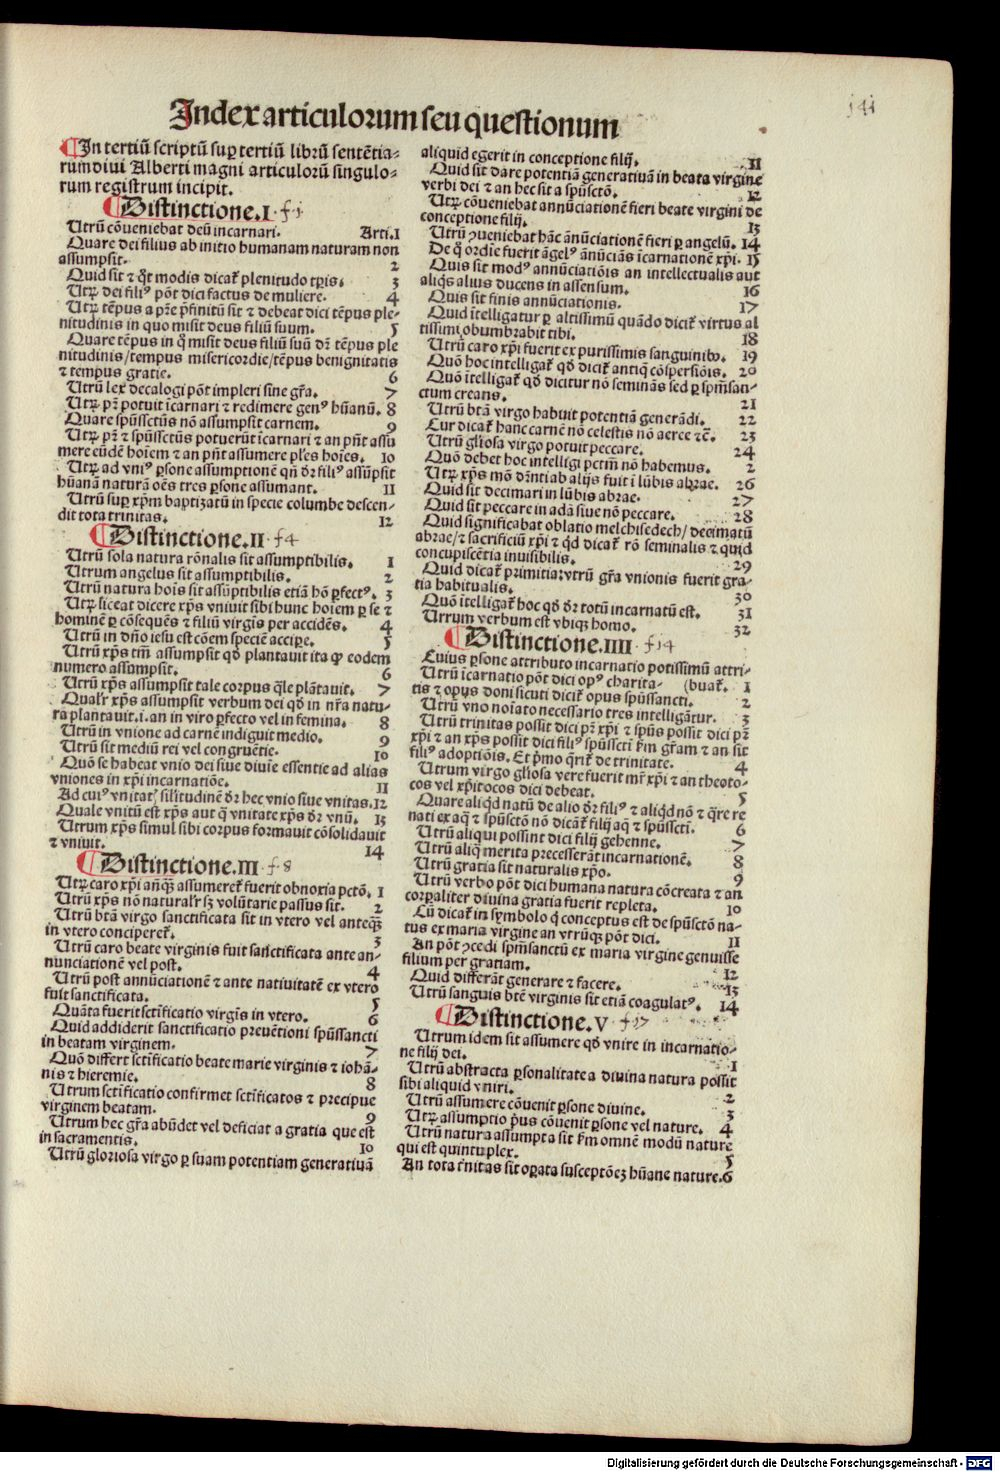 141
Index articulorum seu questionum
In tertiū scriptū sup̲ tertiū librū sentētia⸗
rum diui Alberti magni articulorū singulo⸗
rum registrum incipit.
Distinctione.I. f 1
Utrū cōueniebat deū incarnari. Arti.1
Quare dei filius ab initio humanam naturam non
assumpsit. 2
Quid sit ⁊ q̊t modis dicat̃ plenitudo tp̄is. 3
Utꝝ dei filiꝰ pōt dici factus de muliere. 4
Utꝝ tēpus a pr̄e p̄finitū sit ⁊ debeat dici tēpus ple⸗
nitudinis in quo misit deus filiū suum. 5
Quare tēpus in q̊ misit deus filiū suū dr̄ tēpus ple
nitudinis/tempus misericordie/tēpus benignitatis
⁊ tempus gratie. 6
Utrū lex decalogi pōt impleri sine gr̄a. 7
Utꝝ pr̄ potuit īcarnari ⁊ redimere genꝰ hūanū. 8
Quare spūssctūs nō assumpsit carnem. 9
Utꝝ pr̄ ⁊ spūssctūs potuerūt īcarnari ⁊ an pn̄t assu
mere eūdē hoīem ⁊ an pn̄t assumere pl̄es hoīes. 10
Utꝝ ad vniꝰ ꝑsone assumptionē qn̄ dr̄ filiꝰ assūpsit
hūanā naturā oēs tres ꝑsone assumant. 11
Utrū sup̲ xp̄m baptizatū in specie columbe descen⸗
dit tota trinitas. 12
Distinctione.II. f 4
Utrū sola natura rōnalis sit assumptibilis. 1
Utrum angelus sit assumptibilis. 2
Utrū natura hoīs sit assūptibilis etiā hō ꝑfectꝰ. 3
Utꝝ liceat dicere xp̄s vniuit sibi hunc hoīem ꝑ se ⁊
hominē ꝑ cōsequēs ⁊ filiū virgīs per accidēs. 4
Utrū in dn̄o iesu est cōem speciē accip̲e. 5
Utrū xp̄s tm̄ assumpsit qd̄ plantauit ita ꝙ eodem
numero assumpsit. 6
Utrū xp̄s assumpsit tale corpus q̄le plātauit. 7
Qualr̄ xp̄s assumpsit verbum dei qd̄ in nr̄a natu⸗
ra plantauit.i.an in viro ꝑfecto vel in femina. 8
Utrū in vnione ad carnē indiguit medio. 9
Utrū sit mediū rei vel congruētie. 10
Quō se habeat vnio dei siue diuīe essentie ad alias
vniones in xp̄i incarnatiōe. 11
Ad cuiꝰ vnitatꝭ sil̄itudinē dr̄ hec vnio siue vnitas. 12
Quale vnitū est xp̄s aut q̄ vnitate xp̄s dr̄ vnū. 13
Utrum xp̄s simul sibi corpus formauit cōsolidauit
⁊ vniuit. 14
Distinctione.III. f 8
Utꝝ caro xp̄i anq̄ꝫ assumeret̃ fuerit obnoxia pctō. 1
Utrū xp̄s nō naturalr̄ sꝫ volūtarie passus sit. 2
Utrū btā virgo sanctificata sit in vtero vel anteq̄ꝫ
in vtero conciperet̃. 3
Utrū caro beate virginis fuit sanctificata ante an⸗
nunciationē vel post. 4
Utrū post annūciationē ⁊ ante natiuitatē ex vtero
fuit sanctificata. 5
Quāta fuerit sctīficatio virgīs in vtero. 6
Quid addiderit sanctificatio preuētioni spūssancti
in beatam virginem. 7
Quō differt sctīficatio beate marie virginis ⁊ iohā⸗
nis ⁊ hieremie. 8
Utrum sctīficatio confirmet sctīficatos ⁊ precipue
virginem beatam. 9
Utrum hec gr̄a abūdet vel deficiat a gratia que est
in sacramentis. 10
Utrū gloriosa virgo ꝑ suam potentiam generatiuā
aliquid egerit in conceptione filij. 11
Quid sit dare potentiā generatiuā in beata virgine
verbi dei ⁊ an hec sit a spūsctō. 12
Utꝝ cōueniebat annūciationē fieri beate virgini de
conceptione filij. 13
Utrū ꝯueniebat hāc ānūciationē fieri ꝑ angelū. 14
De q̊ ordīe fuerit āgelꝰ ānūciās īcarnationē xp̄i. 15
Quis sit modꝰ annūciatiōis an intellectualis aut
aliq̊s alius ducens in assensum. 16
Quis sit finis annūciationis. 17
Quid ītelligatur ꝑ altissimū quādo dicit̃ virtus al
tissimi obumbrabit tibi. 18
Utrū caro xp̄i fuerit ex purissimis sanguinibꝰ. 19
Quō hoc intelligat̃ qd̄ dicit̃ antiq̊ cōspersiōis. 20
Quō ītelligat̃ qd̄ dicitur nō seminās sed ꝑ spm̄san⸗
ctum creans. 21
Utrū btā virgo habuit potentiā generādi. 22
Cur dicat̃ hanc carnē nō celestis nō aeree ⁊c̄. 23
Utrū gl̄iosa virgo potuit peccare. 24
Quō debet hoc intelligi pctm̄ nō habemus. 2
Utꝝ xp̄s mō dr̄ntiab alijs fuit ī lūbis abrae. 26
Quid sit decimari in lūbis abrae. 27
Quid sit peccare in adā siue nō peccare. 28
Quid significabat oblatio melchisedech/decimatū
abrae/⁊ sacrificiū xp̄i ⁊ q̊d dicat̃ rō seminalis ⁊ quid
concupiscētia inuisibilis. 29
Quid dicat̃ primitiaꝝ vtrū gr̄a vnionis fuerit gra⸗
tia habitualis. 30
Quō ītelligat̃ hoc qd̄ dr̄ totū incarnatū est. 31
Utrum verbum est vbiqꝫ homo. 32
Distinctione.IIII. f 14
Cuius ꝑsone attributo incarnatio potissimū attri⸗
Utrū īcarnatio pōt dici opꝰ charita⸗ (buat̃. 1
tis ⁊ opus doni sicuti dicit̃ opus spūssancti. 2
Utrū vno noīato necessario tres intelligātur. 3
Utrū trinitas possit dici pr̄ xp̄i ⁊ spūs possit dici pr̄
xp̄i ⁊ an xp̄s possit dici filiꝰ spūsscti ẜm gr̄am ⁊ an sit
filiꝰ adoptiōis. Et p̄mo q̄rit̃ de trinitate. 4
Utrum virgo gl̄iosa vere fuerit mr̄ xp̄i ⁊ an theoto⸗
cos vel xp̄itocos dici debeat. 5
Quare aliq̊d natū de alio dr̄ filiꝰ ⁊ aliq̊d nō ⁊ q̄re re
nati ex aq̄ ⁊ spūsctō nō dicāt̃ filij aq̄ ⁊ spūsscti. 6
Utrū aliqui possint dici filij gehenne. 7
Utrū aliq̄ merita precesserāt incarnationē. 8
Utrū gratia sit naturalis xp̄o. 9
Utrū verbo pōt dici humana natura cōcreata ⁊ an
corꝑaliter diuina gratia fuerit repleta. 10
Cū dicat̃ in symbolo q̊ conceptus est de spūsctō na⸗
tus ex maria virgine an vtrūqꝫ pōt dici. 11
An pōt ꝯcedi spm̄sanctū ex maria virgine genuisse
filium per gratiam. 12
Quid differāt generare ⁊ facere. 13
Utrū sanguis btē virginis sit etiā coagulatꝰ. 14
Distinctione.V f 17
Utrum idem sit assumere qd̄ vnire in incarnatio⸗
ne filij dei. 1
Utrū abstracta ꝑsonalitate a diuina natura possit
sibi aliquid vniri. 2
Utrū assumere cōuenit ꝑsone diuine. 3
Utꝝ assumptio p̄us cōuenit ꝑsone vel nature. 4
Utrū natura assumpta sit ẜm omnē modū nature
qui est quintuplex. 5
An tota tr̄nitas sit oꝑata susceptōeꝫ hūane nature. 6
Digitalisierung gefördert durch die Deutsche Forschungsgemeinschaft - DFG